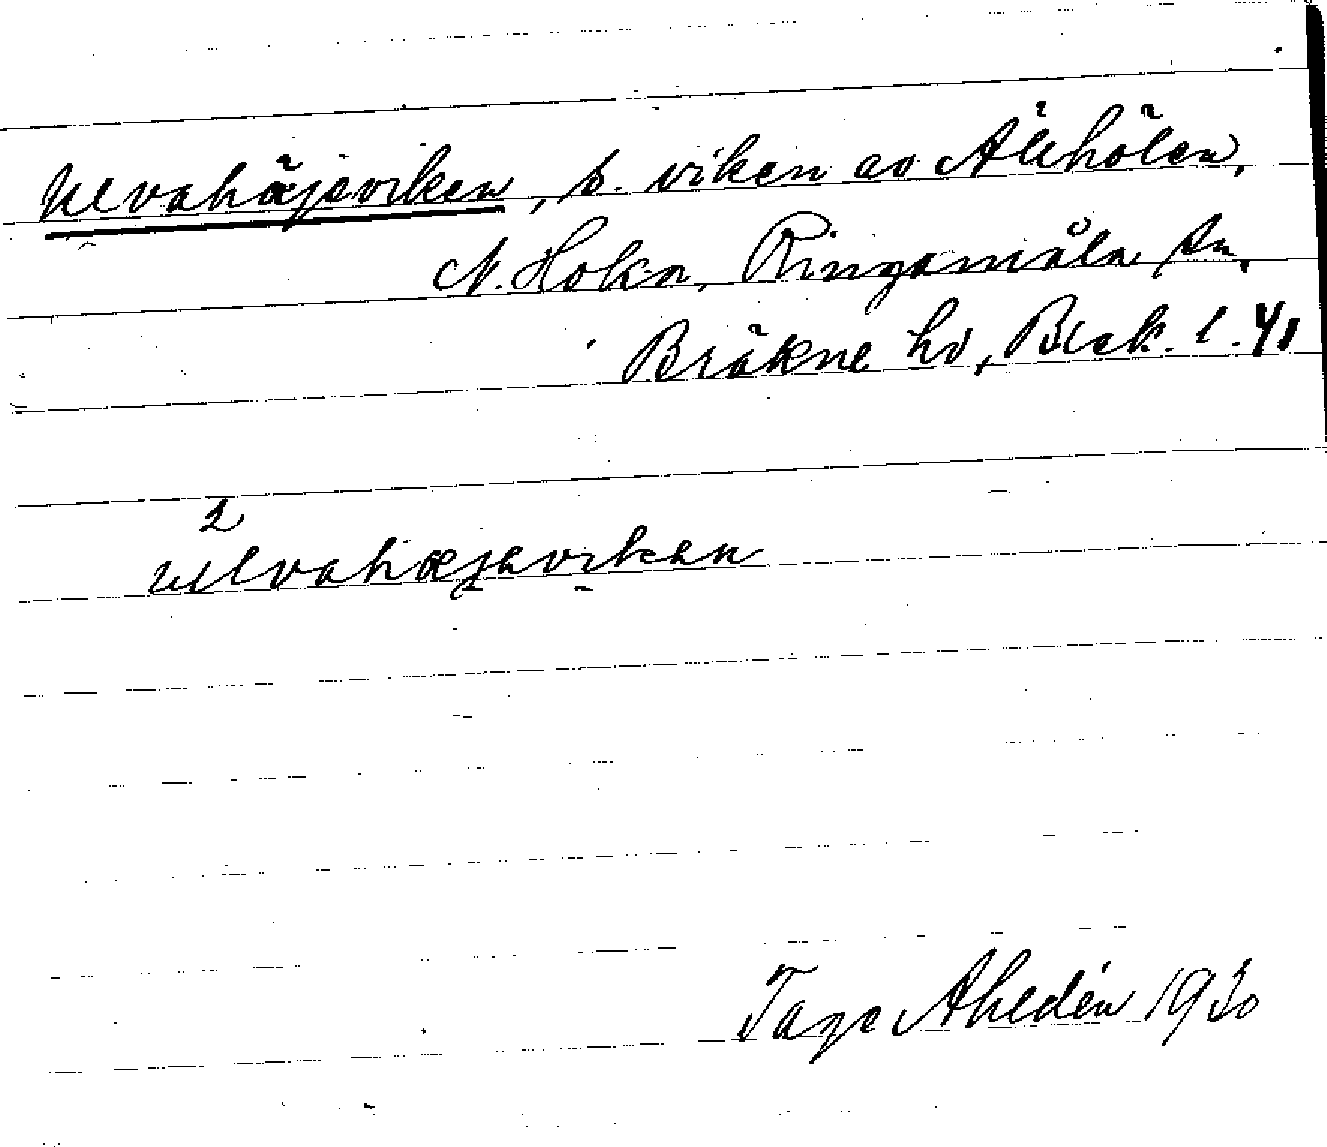 Ulvahäjeviken, s. viken av Älehölen,
N. Hoka, Ringamåla sn.
Bräkne hd, Blek. l. 41
2
ulvahæjeviken
Tage Ahldén 1930